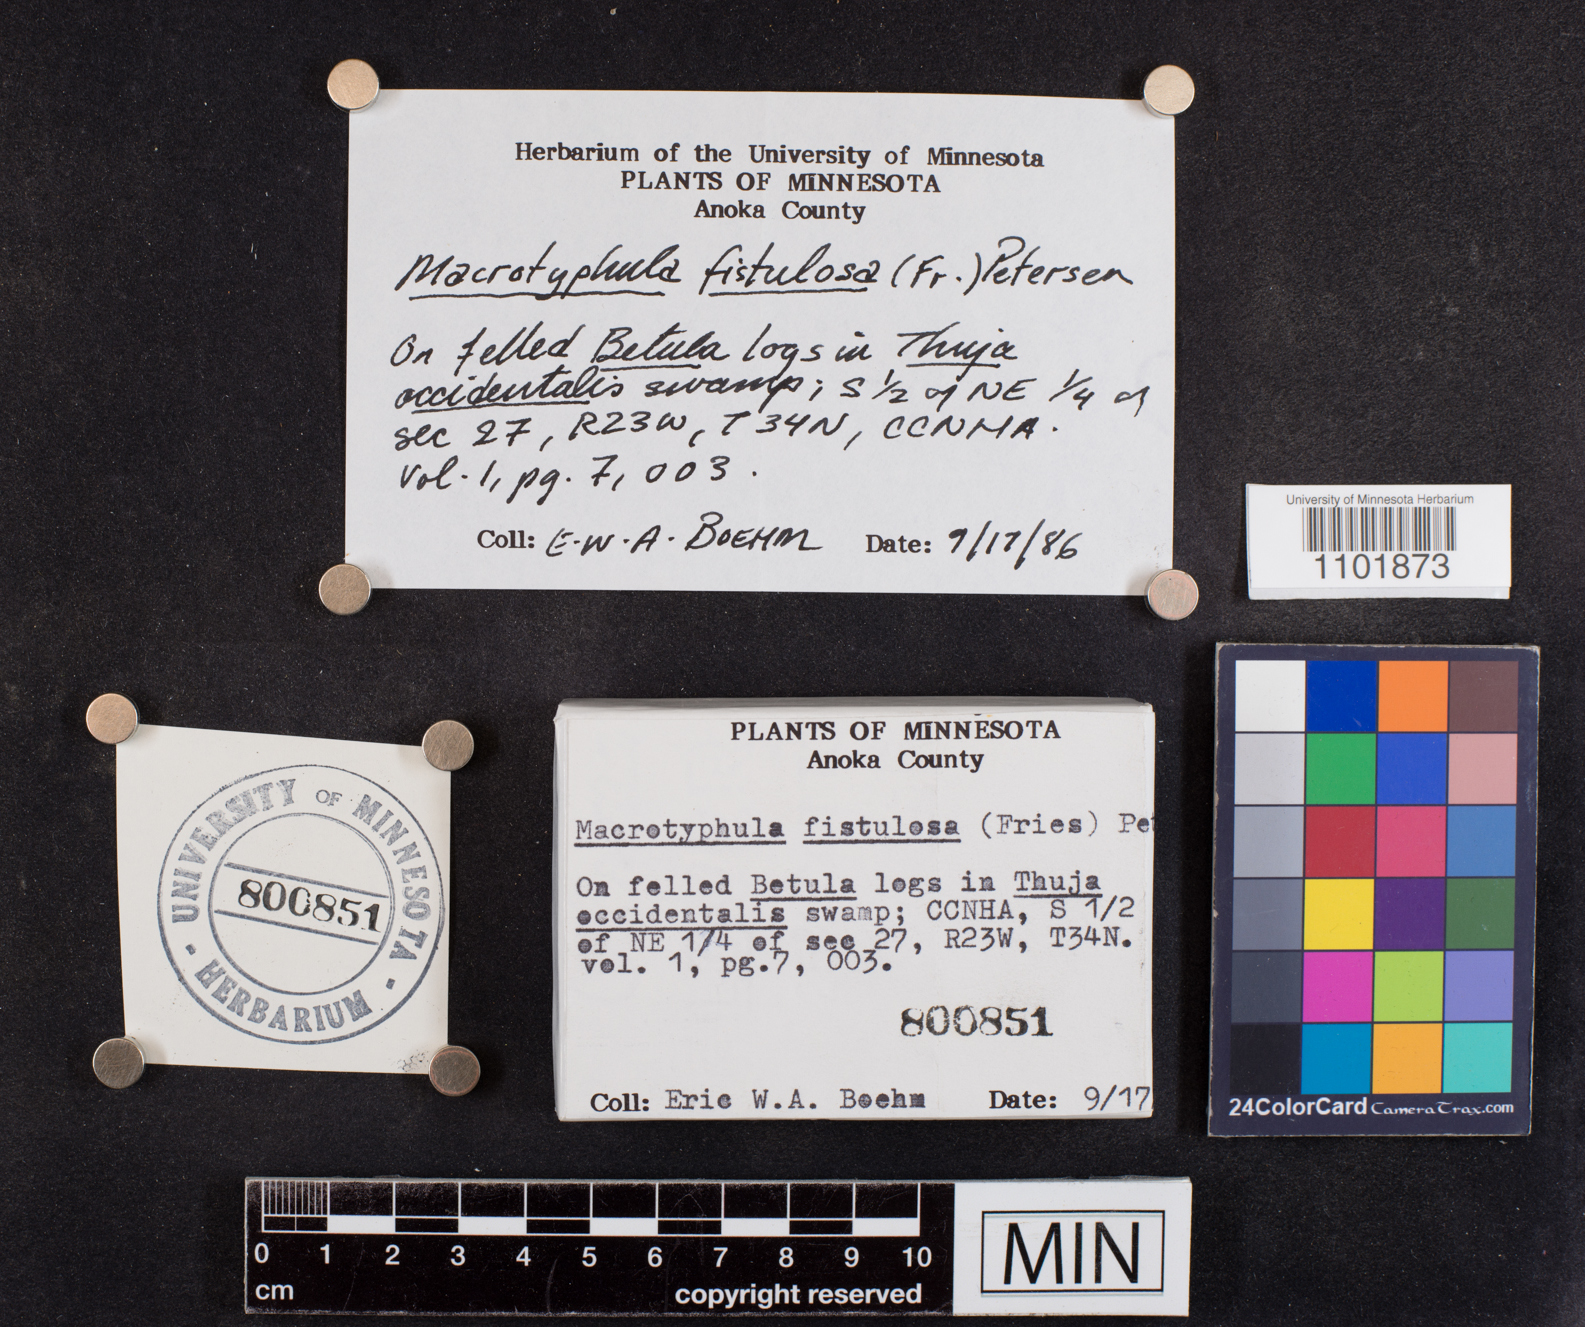 Herbarium of the University of Minnesota
PLANTS OF MINNESOTA
Anoka County
Macrotyphula fistulosa (Fr.) Petersen
On felled Betula logs in Thuja
occidentalis swamp; S 1/2 of NE 1/4 of
sec 27, R23W, T34N, CCNHA.
vol. 1, pg. 7, 003.
Coll: E.W.A. BOEHM Date: 9/17/86
University of Minnesota Herbarium
1101873
UNIVERSITY OF MINNESOTA
800851
• HERBARIUM •
PLANTS OF MINNESOTA
Anoka County
Macrotyphula fistulosa (Fries) Pet
On felled Betula logs in Thuja
occidentalis swamp; CCNHA, S 1/2
of NE 1/4 of sec 27, R23W, T34N.
vol. 1, pg.7, 003.
800851
Coll: Eric W.A. Boehm Date: 9/17
24ColorCard CameraTrax.com
0 1 2 3 4 5 6 7 8 9 10
cm copyright reserved
MIN